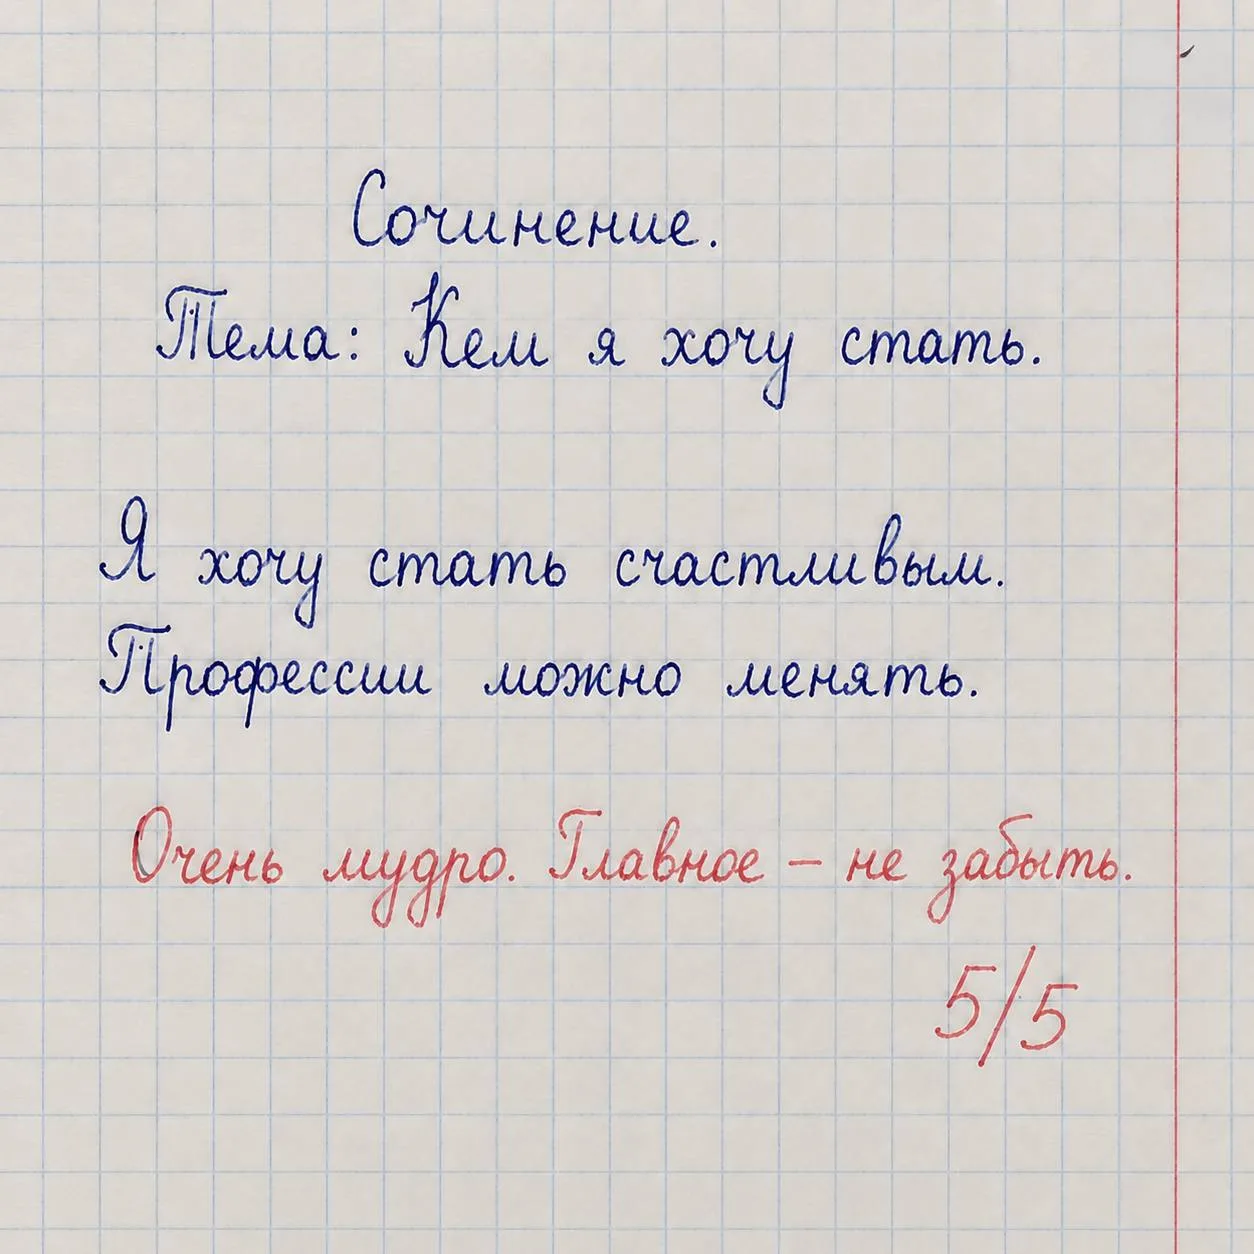 Сочинение.
Тема: Кем я хочу стать.
Я хочу стать счастливым.
Профессии можно менять.
Очень мудро. Главное – не забыть.
5/5